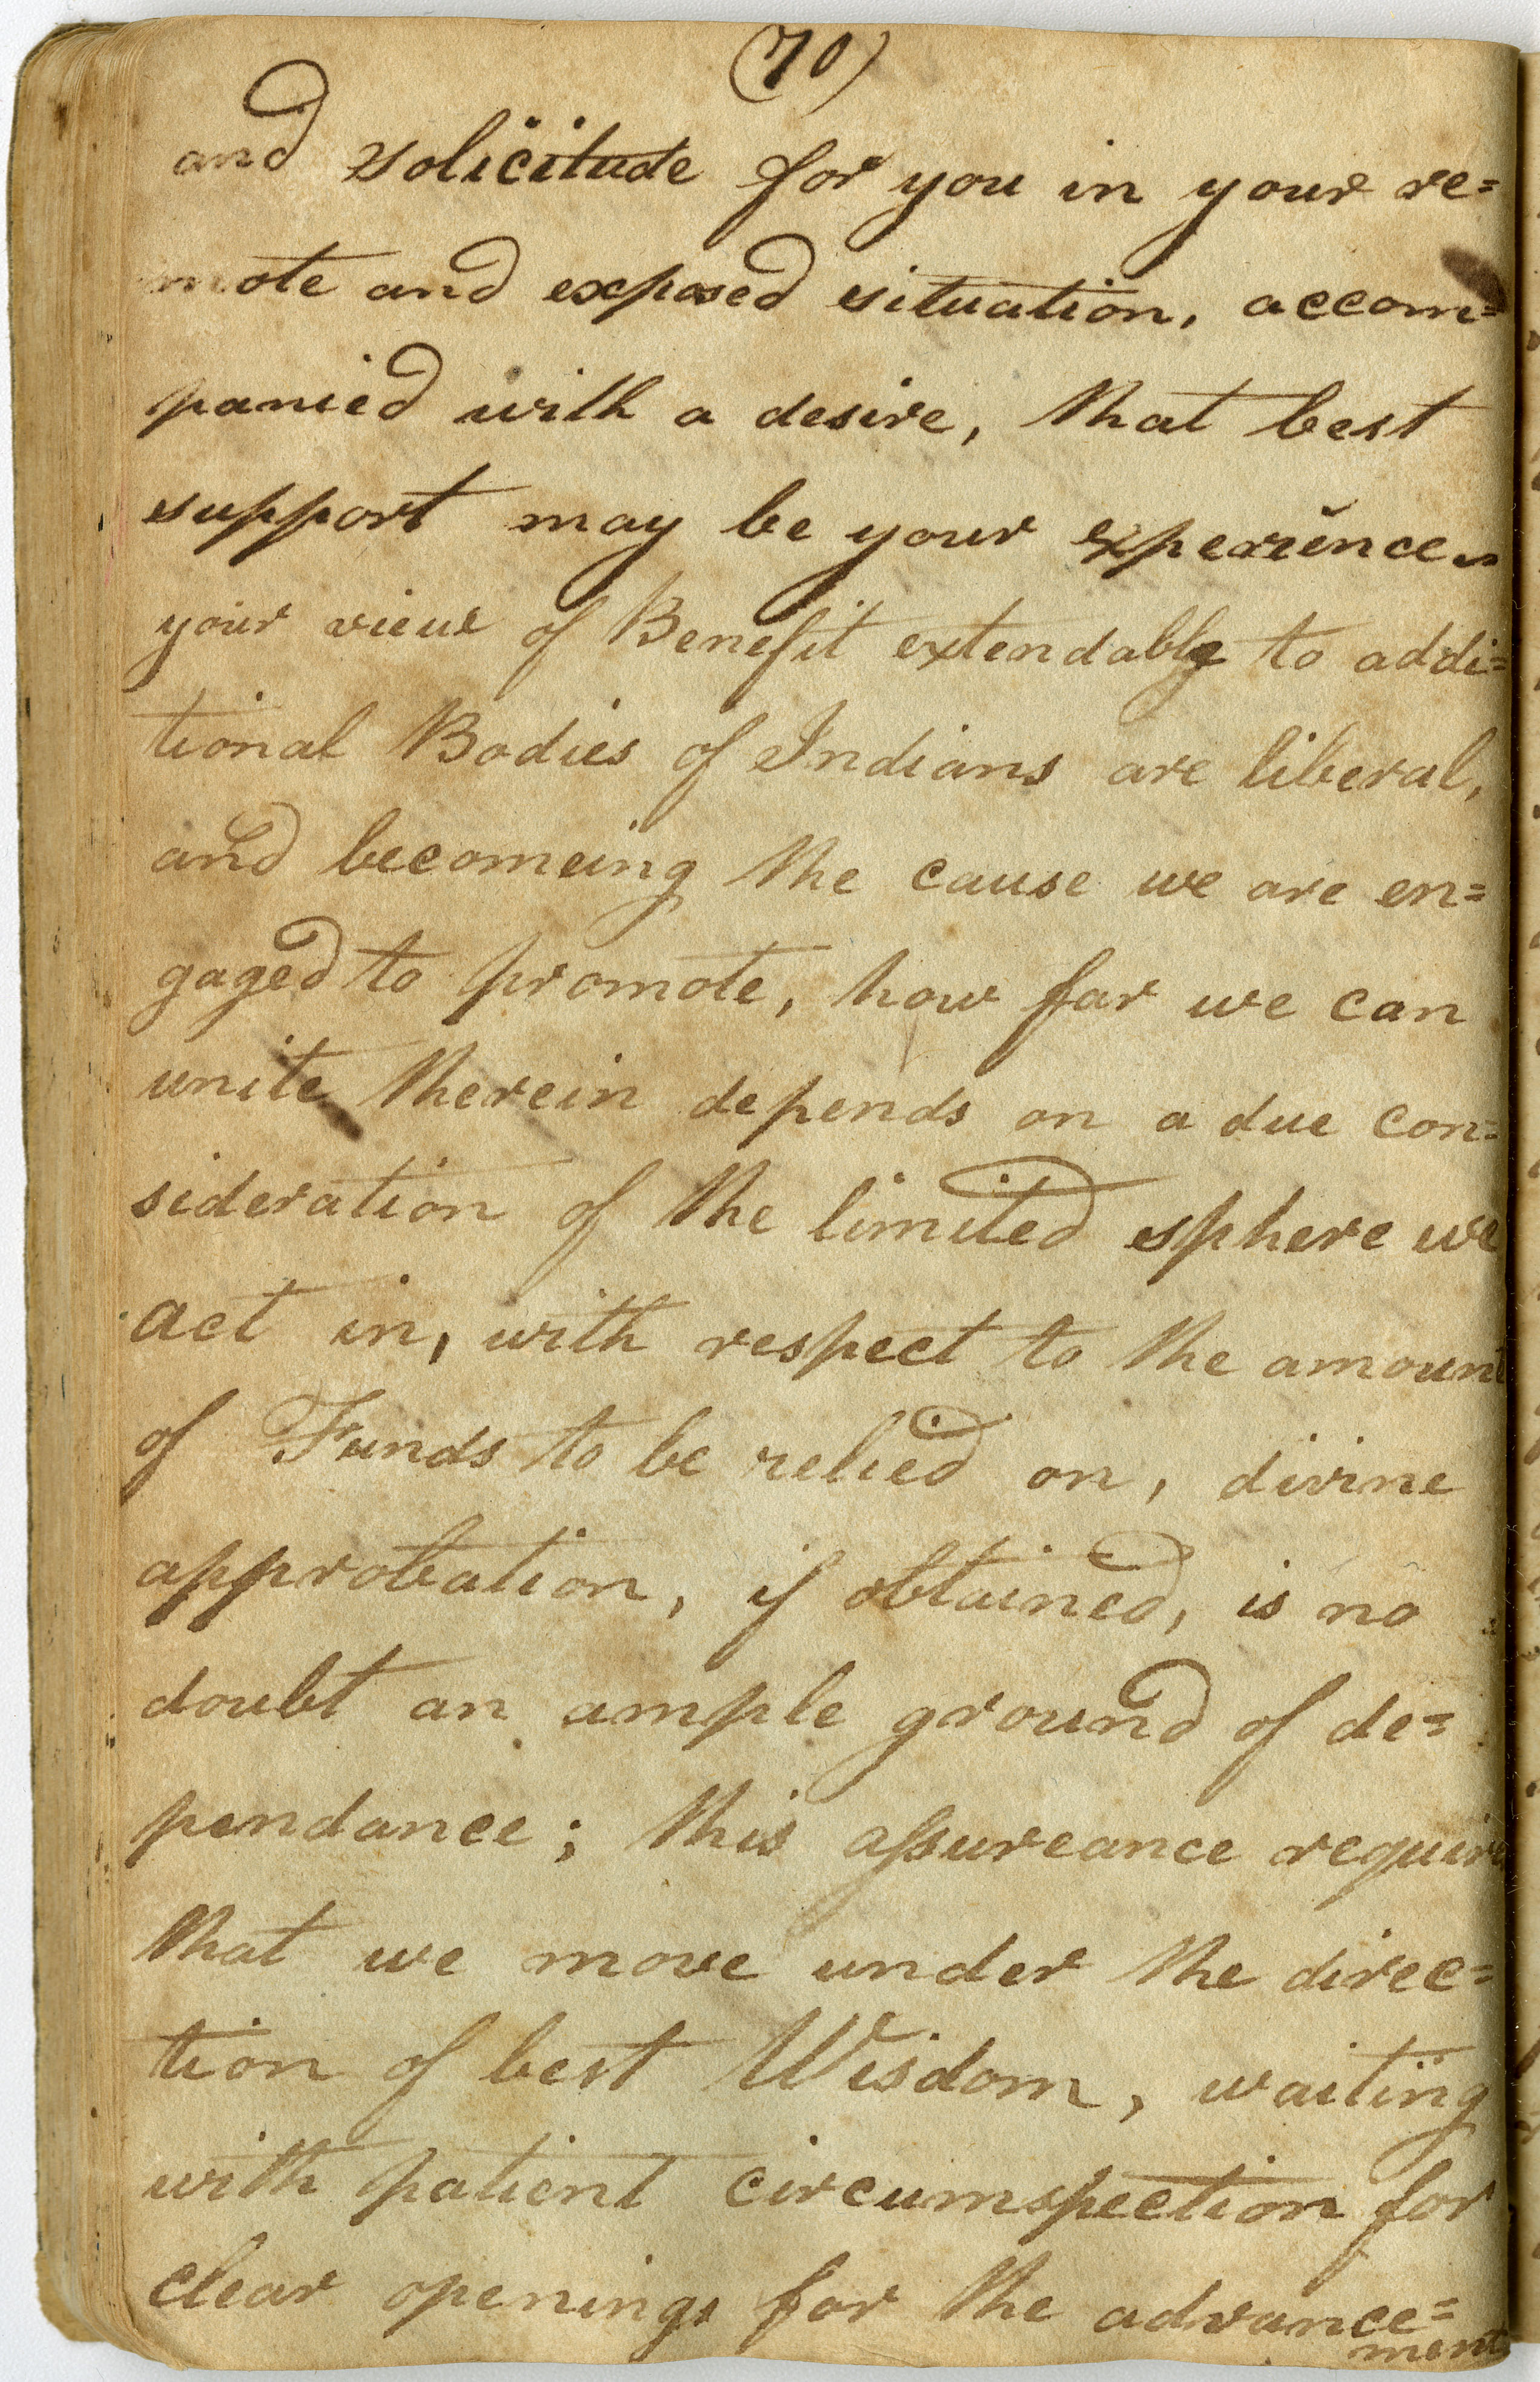 (70)
and solicitude for you in your re=
mote and exposed situation, accom=
panied with a desire, that best
support may be your experience.
your views of Benefit extendable to addi=
tional Bodies of Indians are liberal,
and becomeing the cause we are en=
gaged to promote, how far we can
unite therein depends on a due con=
sideration of the limited sphere we
act in, with respect to the amount
of Funds to be relied on, divine
approbation, if obtained, is no
doubt an ample ground of de=
pendance; this assureance require
that we move under the direc=
tion of best Wisdom, waiting
with patient circumspection for
clear openings for the advance=
ment